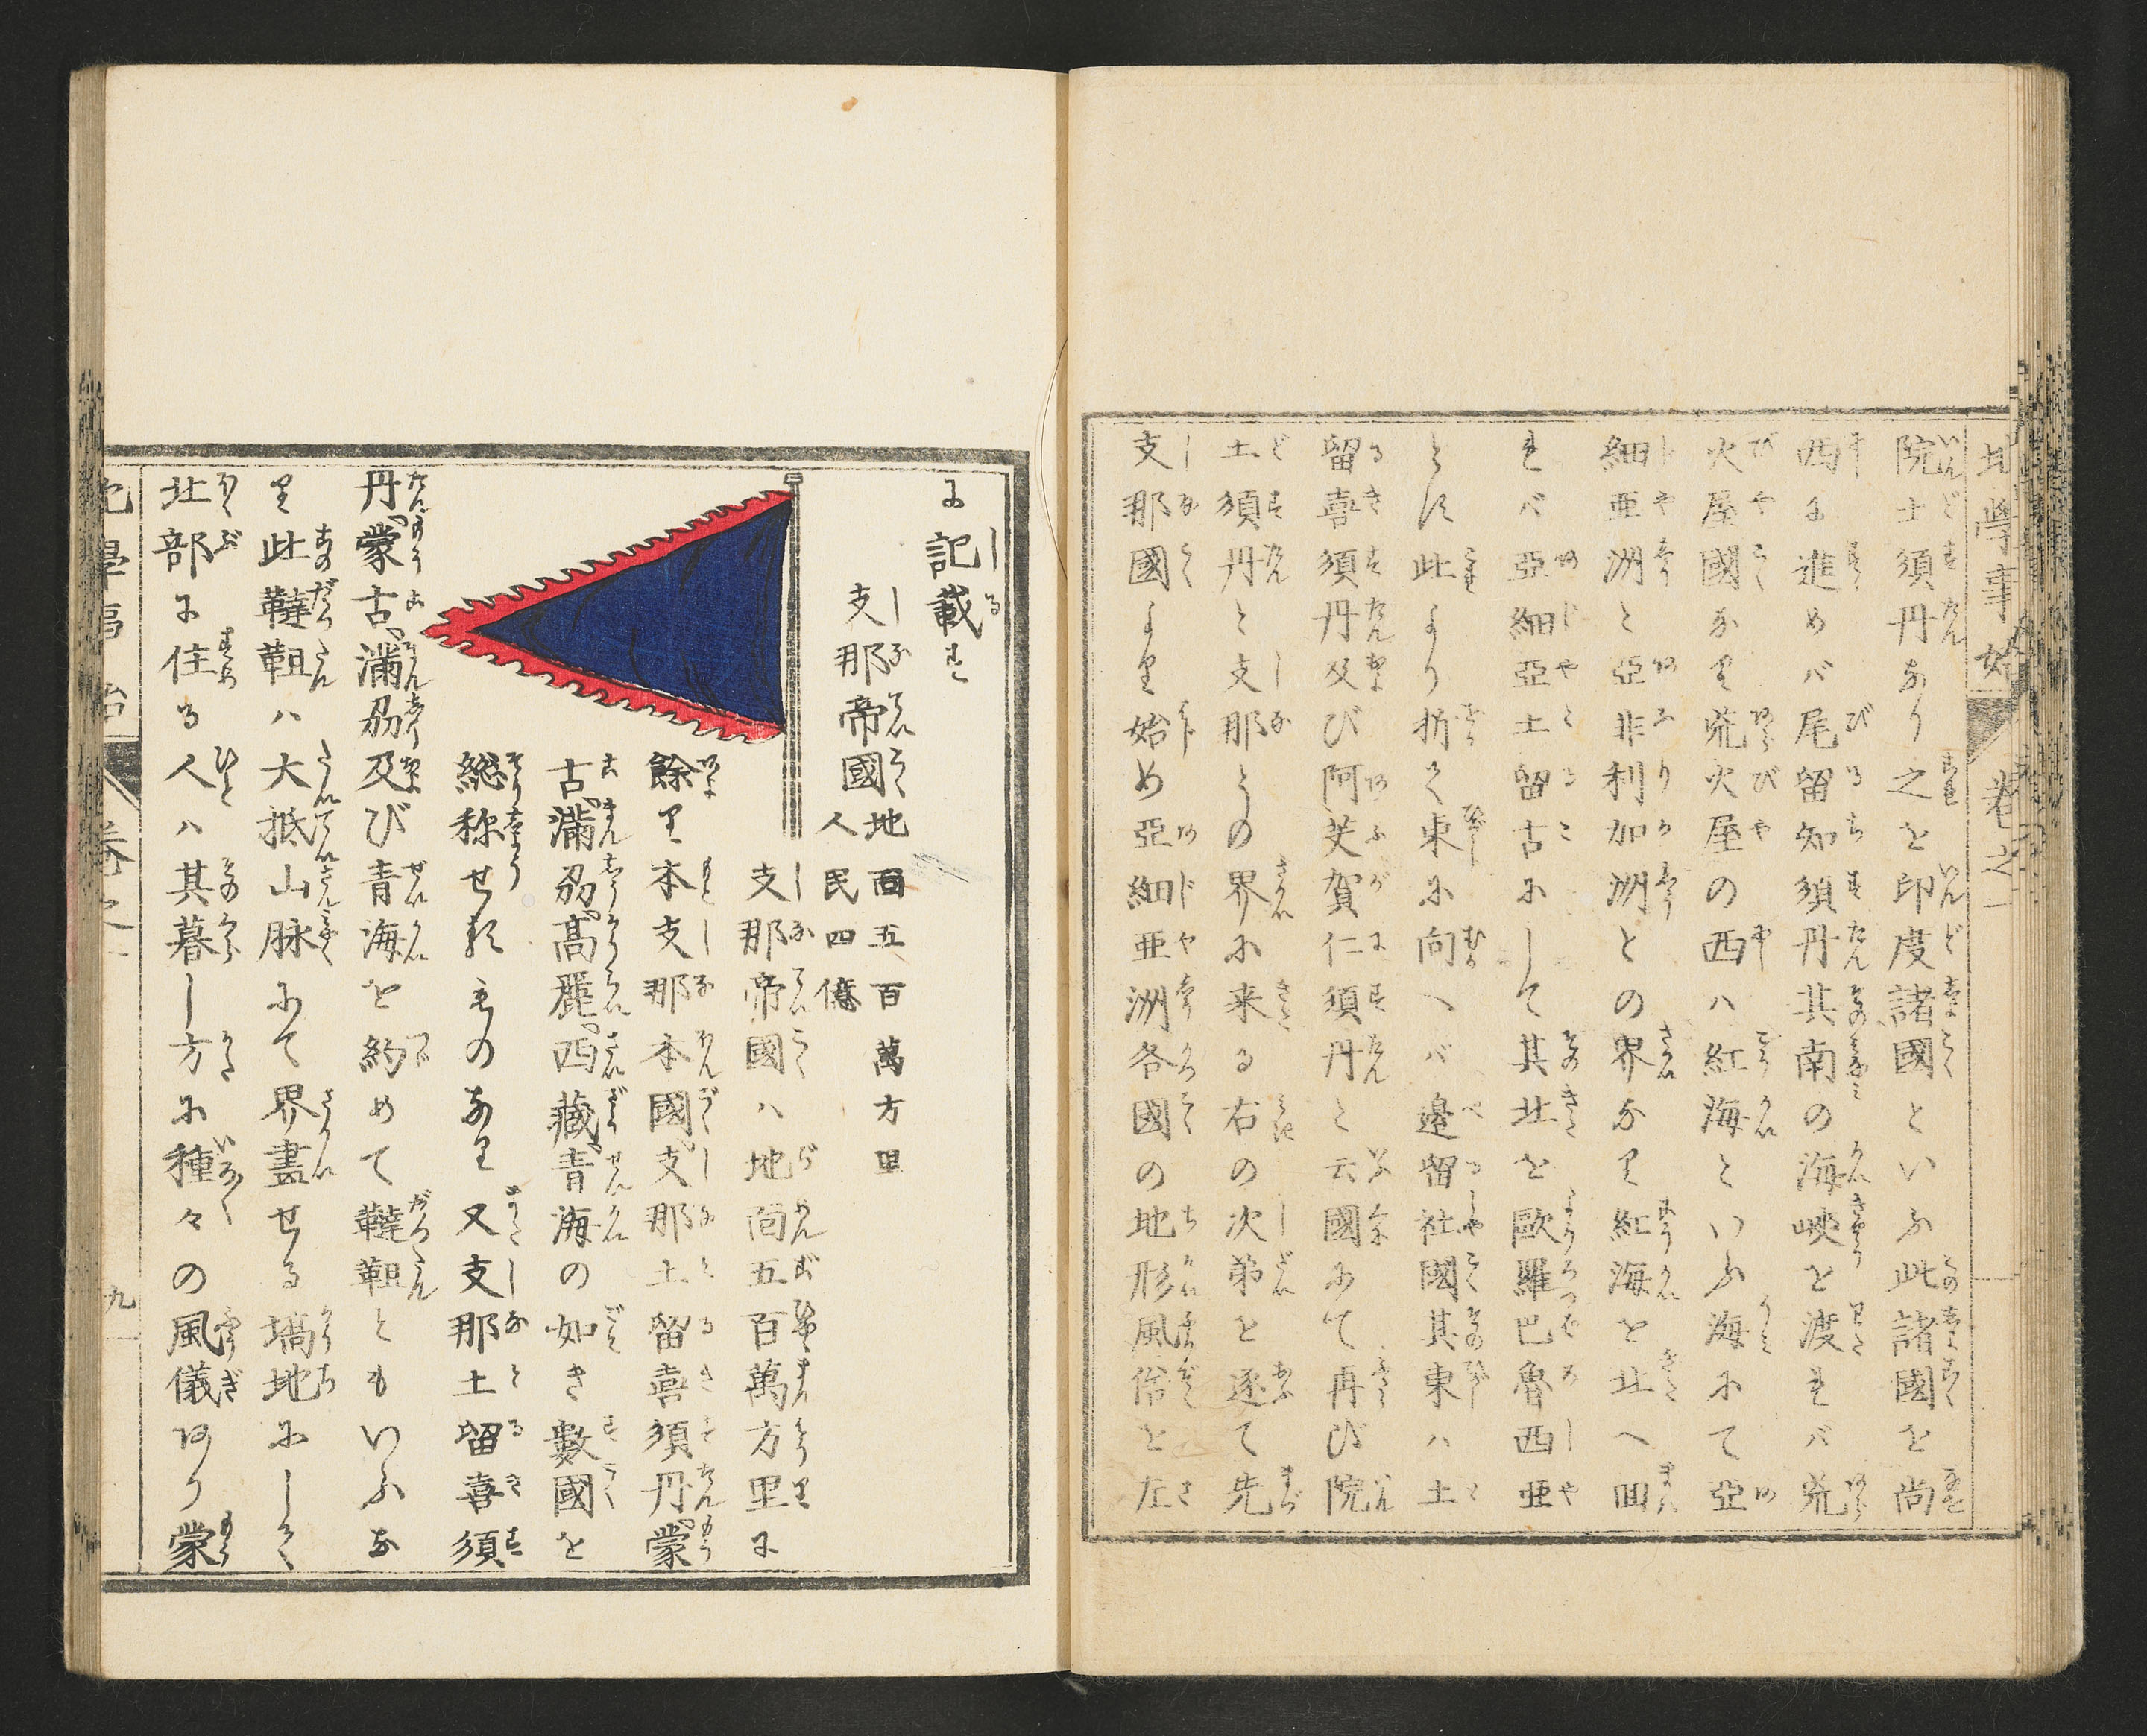 地學事始 巻之一
院土須丹あり之を印度諸國といふ此諸國を尚
西に進めバ尾留知須丹其南の海峡を渡れバ荒
火屋國なり荒火屋の西ハ紅海といふ海にて亞
細亜洲と亞非利加洲との界なり紅海を北へ囬
れバ亞細亞土留古にして其北を歐羅巴魯西亜
とす此より折て東に向へバ邉留社國其東ハ土
留喜須丹及び阿芙賀仁須丹と云國にて再び院
土須丹と支那との界に来る右の次第を逐て先
支那國より始め亞細亜洲各國の地形風俗を左
に記載す
支那帝國 地面五百萬方里
人民四億
支那帝國ハ地面五百萬方里に
餘り本支那本國支那土留喜須丹蒙
古滿刕高麗西藏青海の如き數國を
総称せるものなり又支那土留喜須
丹蒙古滿刕及び青海を約めて韃靼ともいふな
り此韃靼ハ大抵山脉にて界畫せる塙地にして
北部に住る人ハ其暮し方に種々の風儀あり蒙
地學事始 巻之一 九